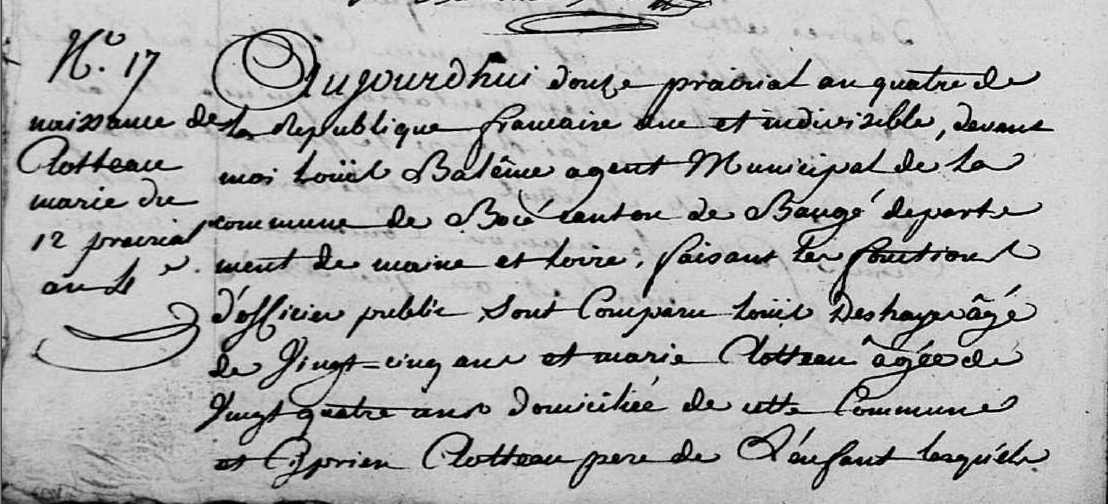 N.º 17
naissance de
Clotteau
marie du
12 prairial
an 4.e
Aujourdhui douze prairial an quatre de
la Republique francaise une et indivisible, devant
moi Loüis Balême agent Municipal de La
commune de Bocé canton de Baugé departe
ment de maine et Loire, faisant les fonctions
d'officier public sont Comparu Loüis Deshayes âgé
de Vingt-cinq ans et marie Clotteau âgée de
Vingt quatre ans domiciliée de cette Commune
et Cyprien Clotteau pere de L'énfant lesquéls